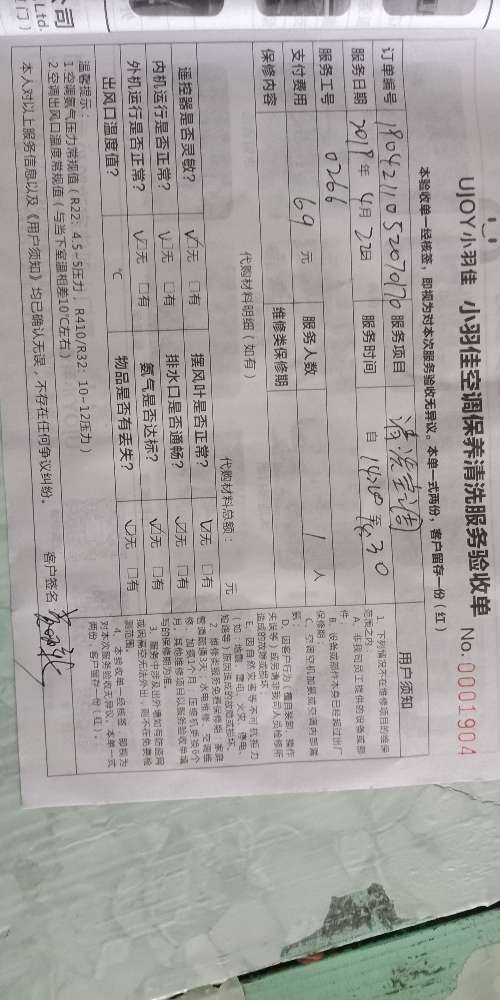 公司
Ltd.
UJOY小羽佳 小羽佳空调保养清洗服务验收单 No.00001904
本验收单一经核签，即视为对本次服务验收无异议。本单一式两份，客户留存一份（红）
订单编号 服务项目
服务日期 2019年 4月 22日 服务时间 自 至
服务工号 0266 服务人数 1 人
支付费用 69 元 维修类保修期
保修内容
代购材料明细（如有） 代购材料总额： 元
遥控器是否灵敏？ 无 有 摆风叶是否正常？ 无 有
内机运行是否正常？ 无 有 排水口是否通畅？ 无 有
外机运行是否正常？ 无 有 氨气是否达标？ 无 有
出风口温度值？ ℃ 物品是否有丢失？ 无 有
温馨提示：
1空调氨气压力常规值（R22：4.5~5压力，R410/R32：10-12压力）
2空调出风口温度常规值（与当下室温相差10℃左右）
本人对以上服务信息以及《用户须知》均已确认无误，不存在任何争议纠纷。 客户签名
用户须知
1、下列情况不在维修项目的维保
范围之内：
A、非我司员工提供的设备或部
件；
B、设备或部件本身已经超过出厂
保修期；
D、因客户行为（擅自装卸、操作
失误等）或另请非我司人员检修所
造成的故障或损坏
E、因自然灾害等不可抗拒力
（如：地震、雷击、火灾、停电、
2、维修类服务免费保修期：家居
管道疏通3天，水电维修、空调维
修、加氨1个月，压缩机更换6个
月，其他维修项目以服务验收单填
写的保修期为准。
4、本验收单一经核签，即视为
对本次服务验收无异议。本单一式
两份，客户留存一份（红）。